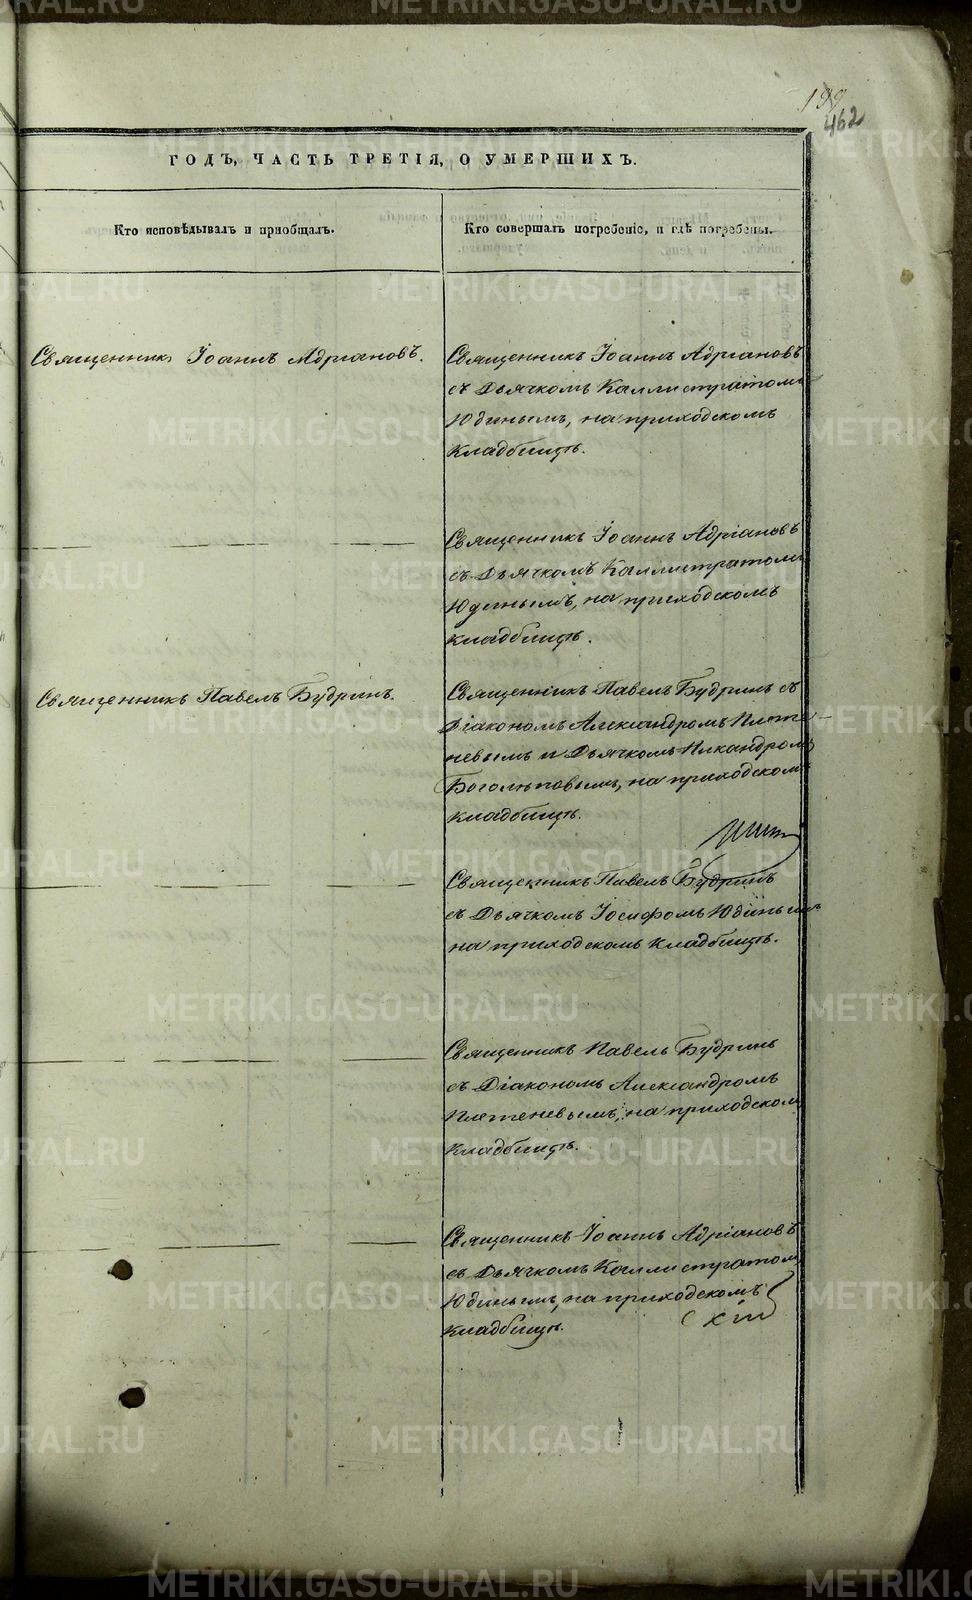 199
462
ГОДЪ, ЧАСТЬ ТРЕТІЯ, О УМЕРШИХЪ.
Кто исповѣдывалъ и пріобщалъ.
Кто совершалъ погребеніе, и гдѣ погребены.
Священникъ Іоаннъ Адріановъ.
Священникъ Іоаннъ Адріановъ
съ Дьячкомъ Каллистратомъ
Юдинымъ, на приходскомъ
кладбищѣ.
Священникъ Іоаннъ Адріановъ
съ Дьячкомъ Каллистратомъ
Юдинымъ, на приходскомъ
кладбищѣ.
Священникъ Павелъ Будринъ.
Священникъ Павелъ Будринъ съ
Діакономъ Александромъ Плете-
невымъ и Дьячкомъ Никандромъ
Боголѣповымъ, на приходскомъ
кладбищѣ.
Священникъ Павелъ Будринъ
съ Дьячкомъ Іосифомъ Юдинымъ
на приходскомъ кладбищѣ.
Священникъ Павелъ Будринъ
съ Діакономъ Александромъ
Плетеневымъ, на приходскомъ
кладбищѣ.
Священникъ Іоаннъ Адріановъ
съ Дьячкомъ Каллистратомъ
Юдинымъ, на приходскомъ
кладбищѣ.
METRIKI.GASO-URAL.RU